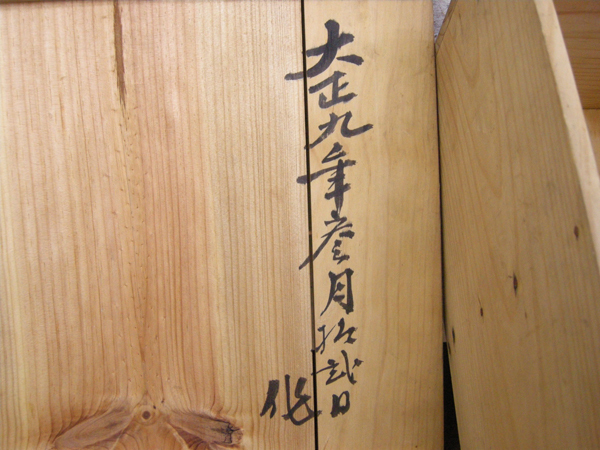 大正九年参月拾弐日
作